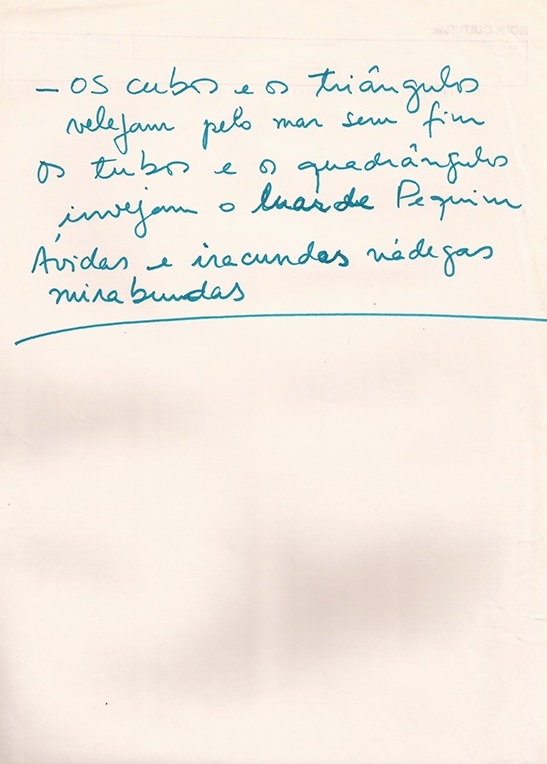 — OS cubos e os triângulos
velejam pelo mar sem fim
os tubos e os quadrângulos
invejam o luar de Pequim
Ávidas e iracundas nádegas
mirabundas